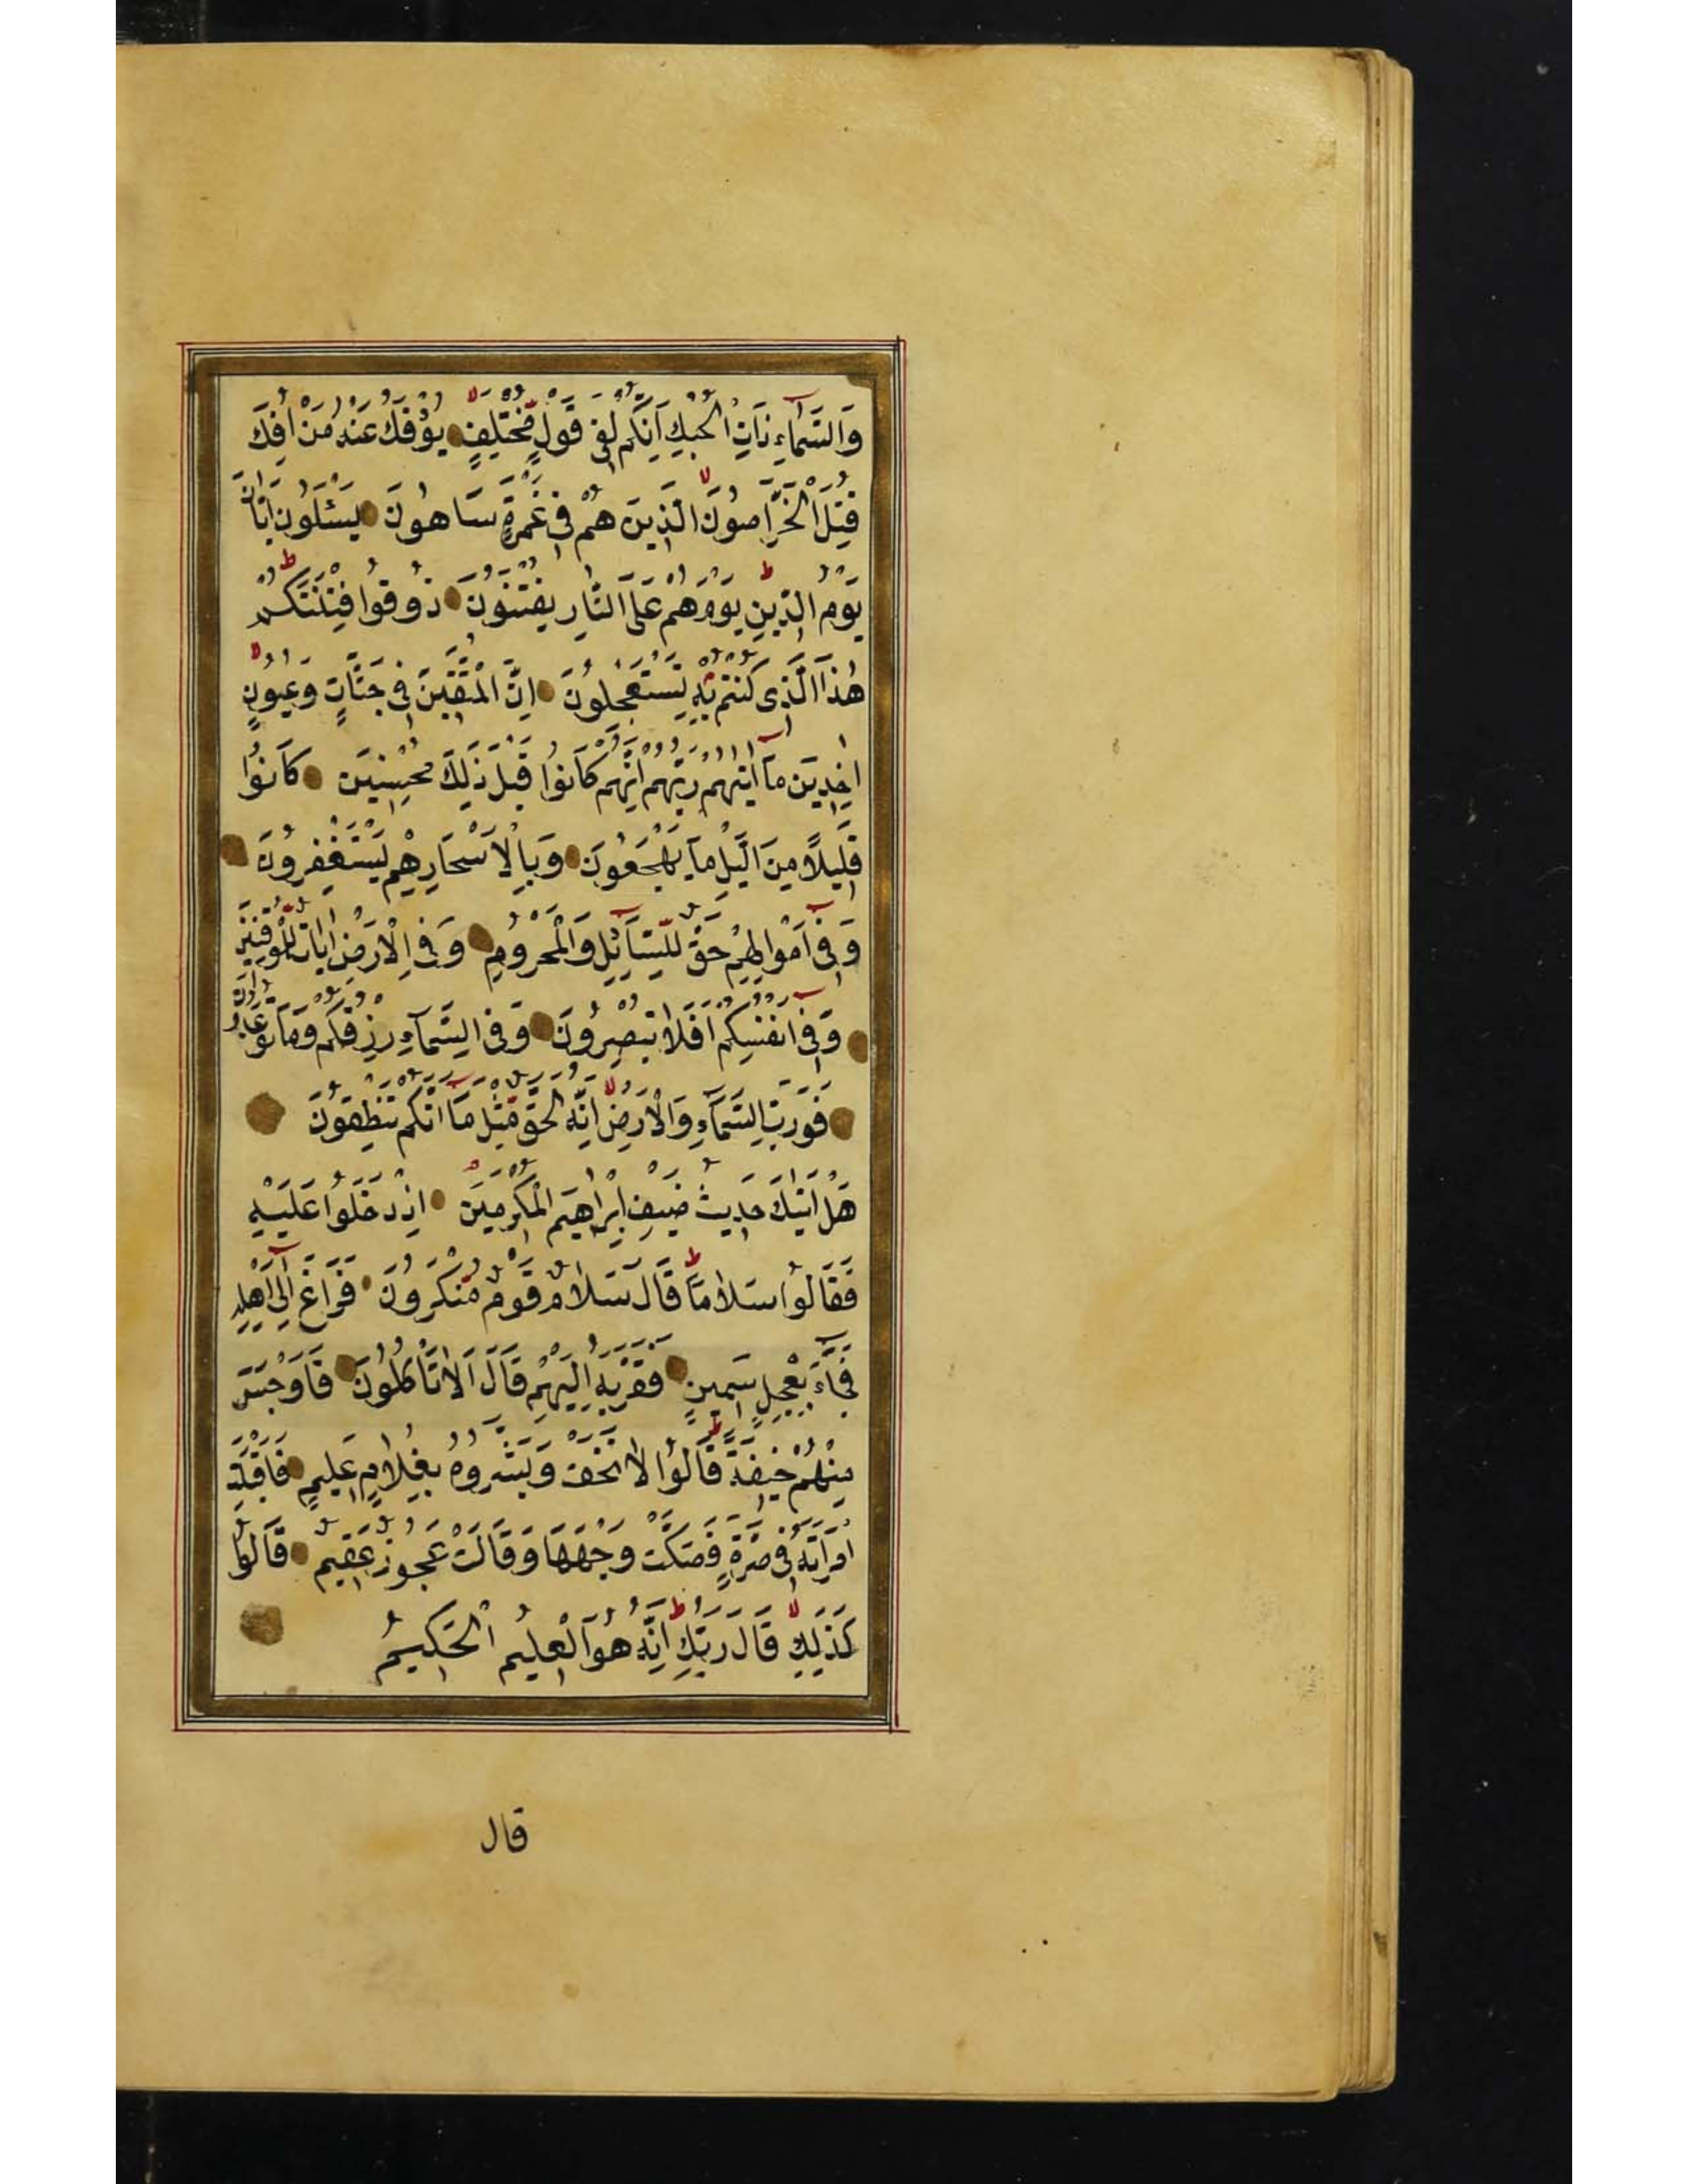 وَالسَّمَآءِ ذَاتِ الْحُبُكِ اِنَّكُمْ لَفِى قَوْلٍ مُخْتَلِفٍ يُؤْفَكُ عَنْهُ مَنْ اُفِكَ
قُتِلَ الْخَرَّاصُونَ الَّذِينَ هُمْ فِى غَمْرَةٍ سَاهُونَ يَسْئَلُونَ اَيَّانَ
يَوْمُ الدِّينِ يَوْمَ هُمْ عَلَى النَّارِ يُفْتَنُونَ ذُوقُوا فِتْنَتَكُمْ
هٰذَا الَّذِى كُنْتُمْ بِهِ تَسْتَعْجِلُونَ اِنَّ الْمُتَّقِينَ فِى جَنَّاتٍ وَعُيُونٍ
اٰخِذِينَ مَآ اٰتٰيهُمْ رَبُّهُمْ اِنَّهُمْ كَانُوا قَبْلَ ذٰلِكَ مُحْسِنِينَ كَانُوا
قَلِيلًا مِنَ الَّيْلِ مَا يَهْجَعُونَ وَبِالْاَسْحَارِ هُمْ يَسْتَغْفِرُونَ
وَفِىٓ اَمْوَالِهِمْ حَقٌّ لِلسَّآئِلِ وَالْمَحْرُومِ وَفِى الْاَرْضِ اٰيَاتٌ لِلْمُوقِنِينَ
وَفِىٓ اَنْفُسِكُمْ اَفَلَا تُبْصِرُونَ وَفِى السَّمَآءِ رِزْقُكُمْ وَمَا تُوعَدُونَ
فَوَرَبِّ السَّمَآءِ وَالْاَرْضِ اِنَّهُ لَحَقٌّ مِثْلَ مَآ اَنَّكُمْ تَنْطِقُونَ
هَلْ اَتٰيكَ حَدِيثُ ضَيْفِ اِبْرٰهِيمَ الْمُكْرَمِينَ اِذْ دَخَلُوا عَلَيْهِ
فَقَالُوا سَلَامًا قَالَ سَلَامٌ قَوْمٌ مُنْكَرُونَ فَرَاغَ اِلٰىٓ اَهْلِهِ
فَجَآءَ بِعِجْلٍ سَمِينٍ فَقَرَّبَهُ اِلَيْهِمْ قَالَ اَلَا تَاْكُلُونَ فَاَوْجَسَ
مِنْهُمْ خِيفَةً قَالُوا لَا تَخَفْ وَبَشَّرُوهُ بِغُلَامٍ عَلِيمٍ فَاَقْبَلَتِ
امْرَاَتُهُ فِى صَرَّةٍ فَصَكَّتْ وَجْهَهَا وَقَالَتْ عَجُوزٌ عَقِيمٌ قَالُوا
كَذٰلِكِ قَالَ رَبُّكِ اِنَّهُ هُوَ الْعَلِيمُ الْحَكِيمُ
قال